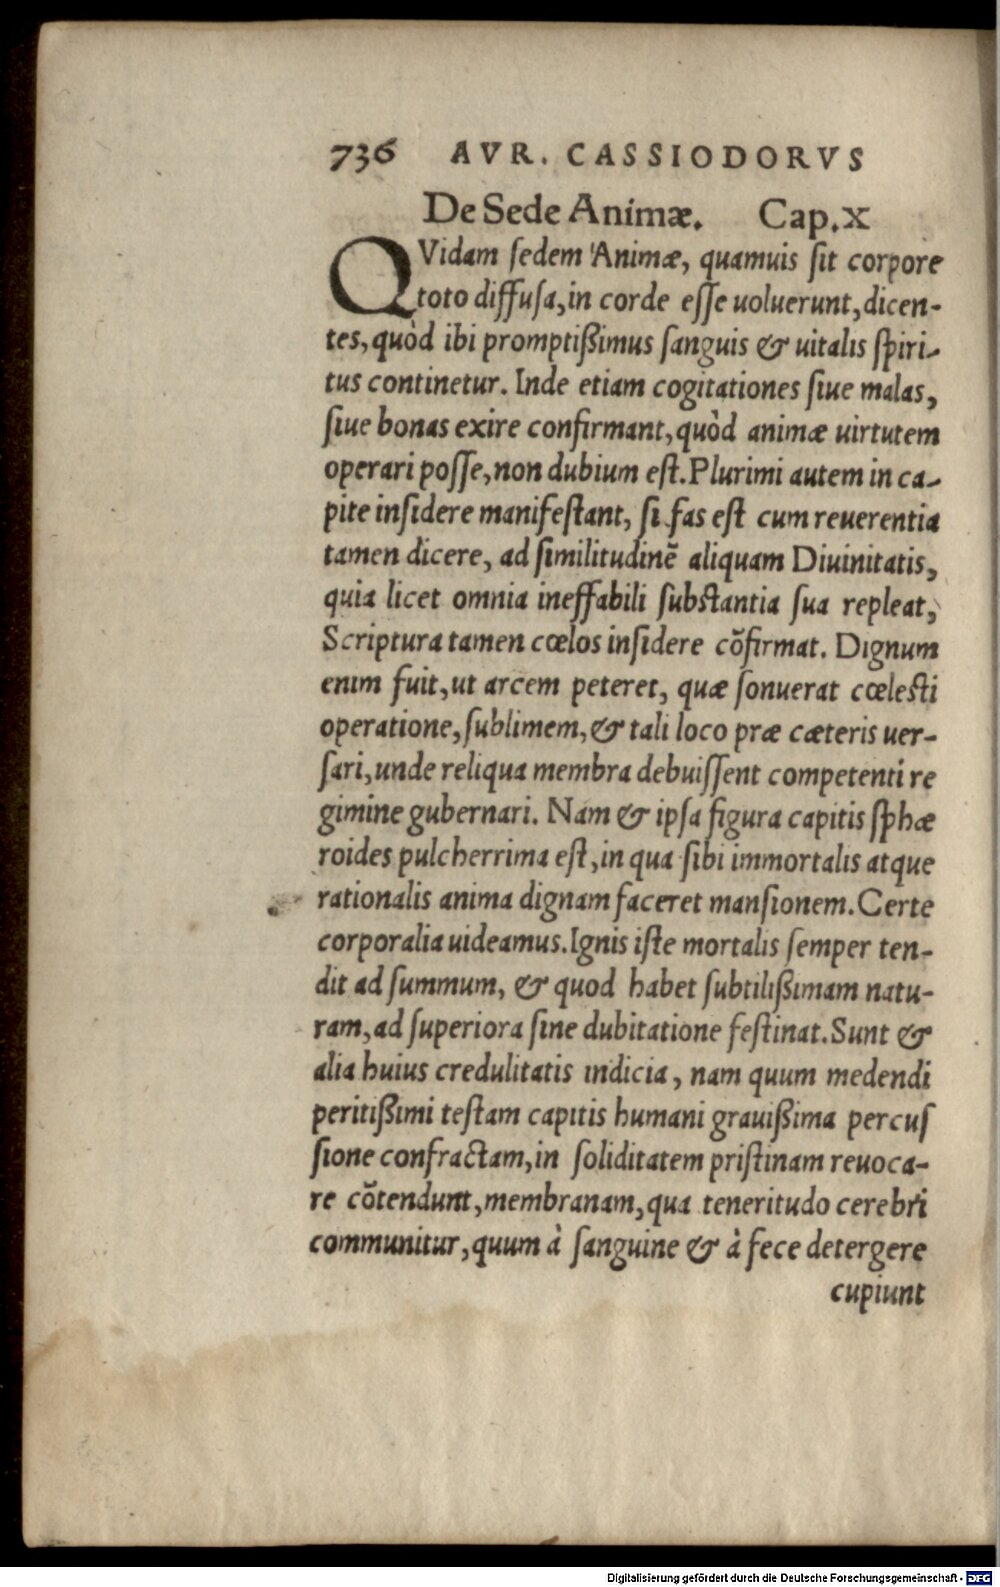 736 AVR. CASSIODORVS
De Sede Animæ. Cap. X
QVidam ſedem Animæ, quamuis ſit corpore
toto diffuſa, in corde eſſe uoluerunt, dicen-
tes, quòd ibi promptißimus ſanguis & uitalis ſpiri-
tus continetur. Inde etiam cogitationes ſiue malas,
ſiue bonas exire confirmant, quòd animæ uirtutem
operari poſſe, non dubium eſt. Plurimi autem in ca-
pite inſidere manifeſtant, ſi fas eſt cum reuerentia
tamen dicere, ad ſimilitudinẽ aliquam Diuinitatis,
quia licet omnia ineffabili ſubſtantia ſua repleat,
Scriptura tamen cœlos inſidere cõfirmat. Dignum
enim fuit, ut arcem peteret, quæ ſonuerat cœleſti
operatione, ſublimem, & tali loco præ cæteris uer-
ſari, unde reliqua membra debuiſſent competenti re
gimine gubernari. Nam & ipſa figura capitis ſphæ
roides pulcherrima eſt, in qua ſibi immortalis atque
rationalis anima dignam faceret manſionem. Certe
corporalia uideamus. Ignis iſte mortalis ſemper ten-
dit ad ſummum, & quod habet ſubtilißimam natu-
ram, ad ſuperiora ſine dubitatione feſtinat. Sunt &
alia huius credulitatis indicia, nam quum medendi
peritißimi teſtam capitis humani grauißima percuſ
ſione confractam, in ſoliditatem priſtinam reuoca-
re cõtendunt, membranam, qua teneritudo cerebri
communitur, quum à ſanguine & à fece detergere
cupiunt
Digitalisierung gefördert durch die Deutsche Forschungsgemeinschaft - DFG